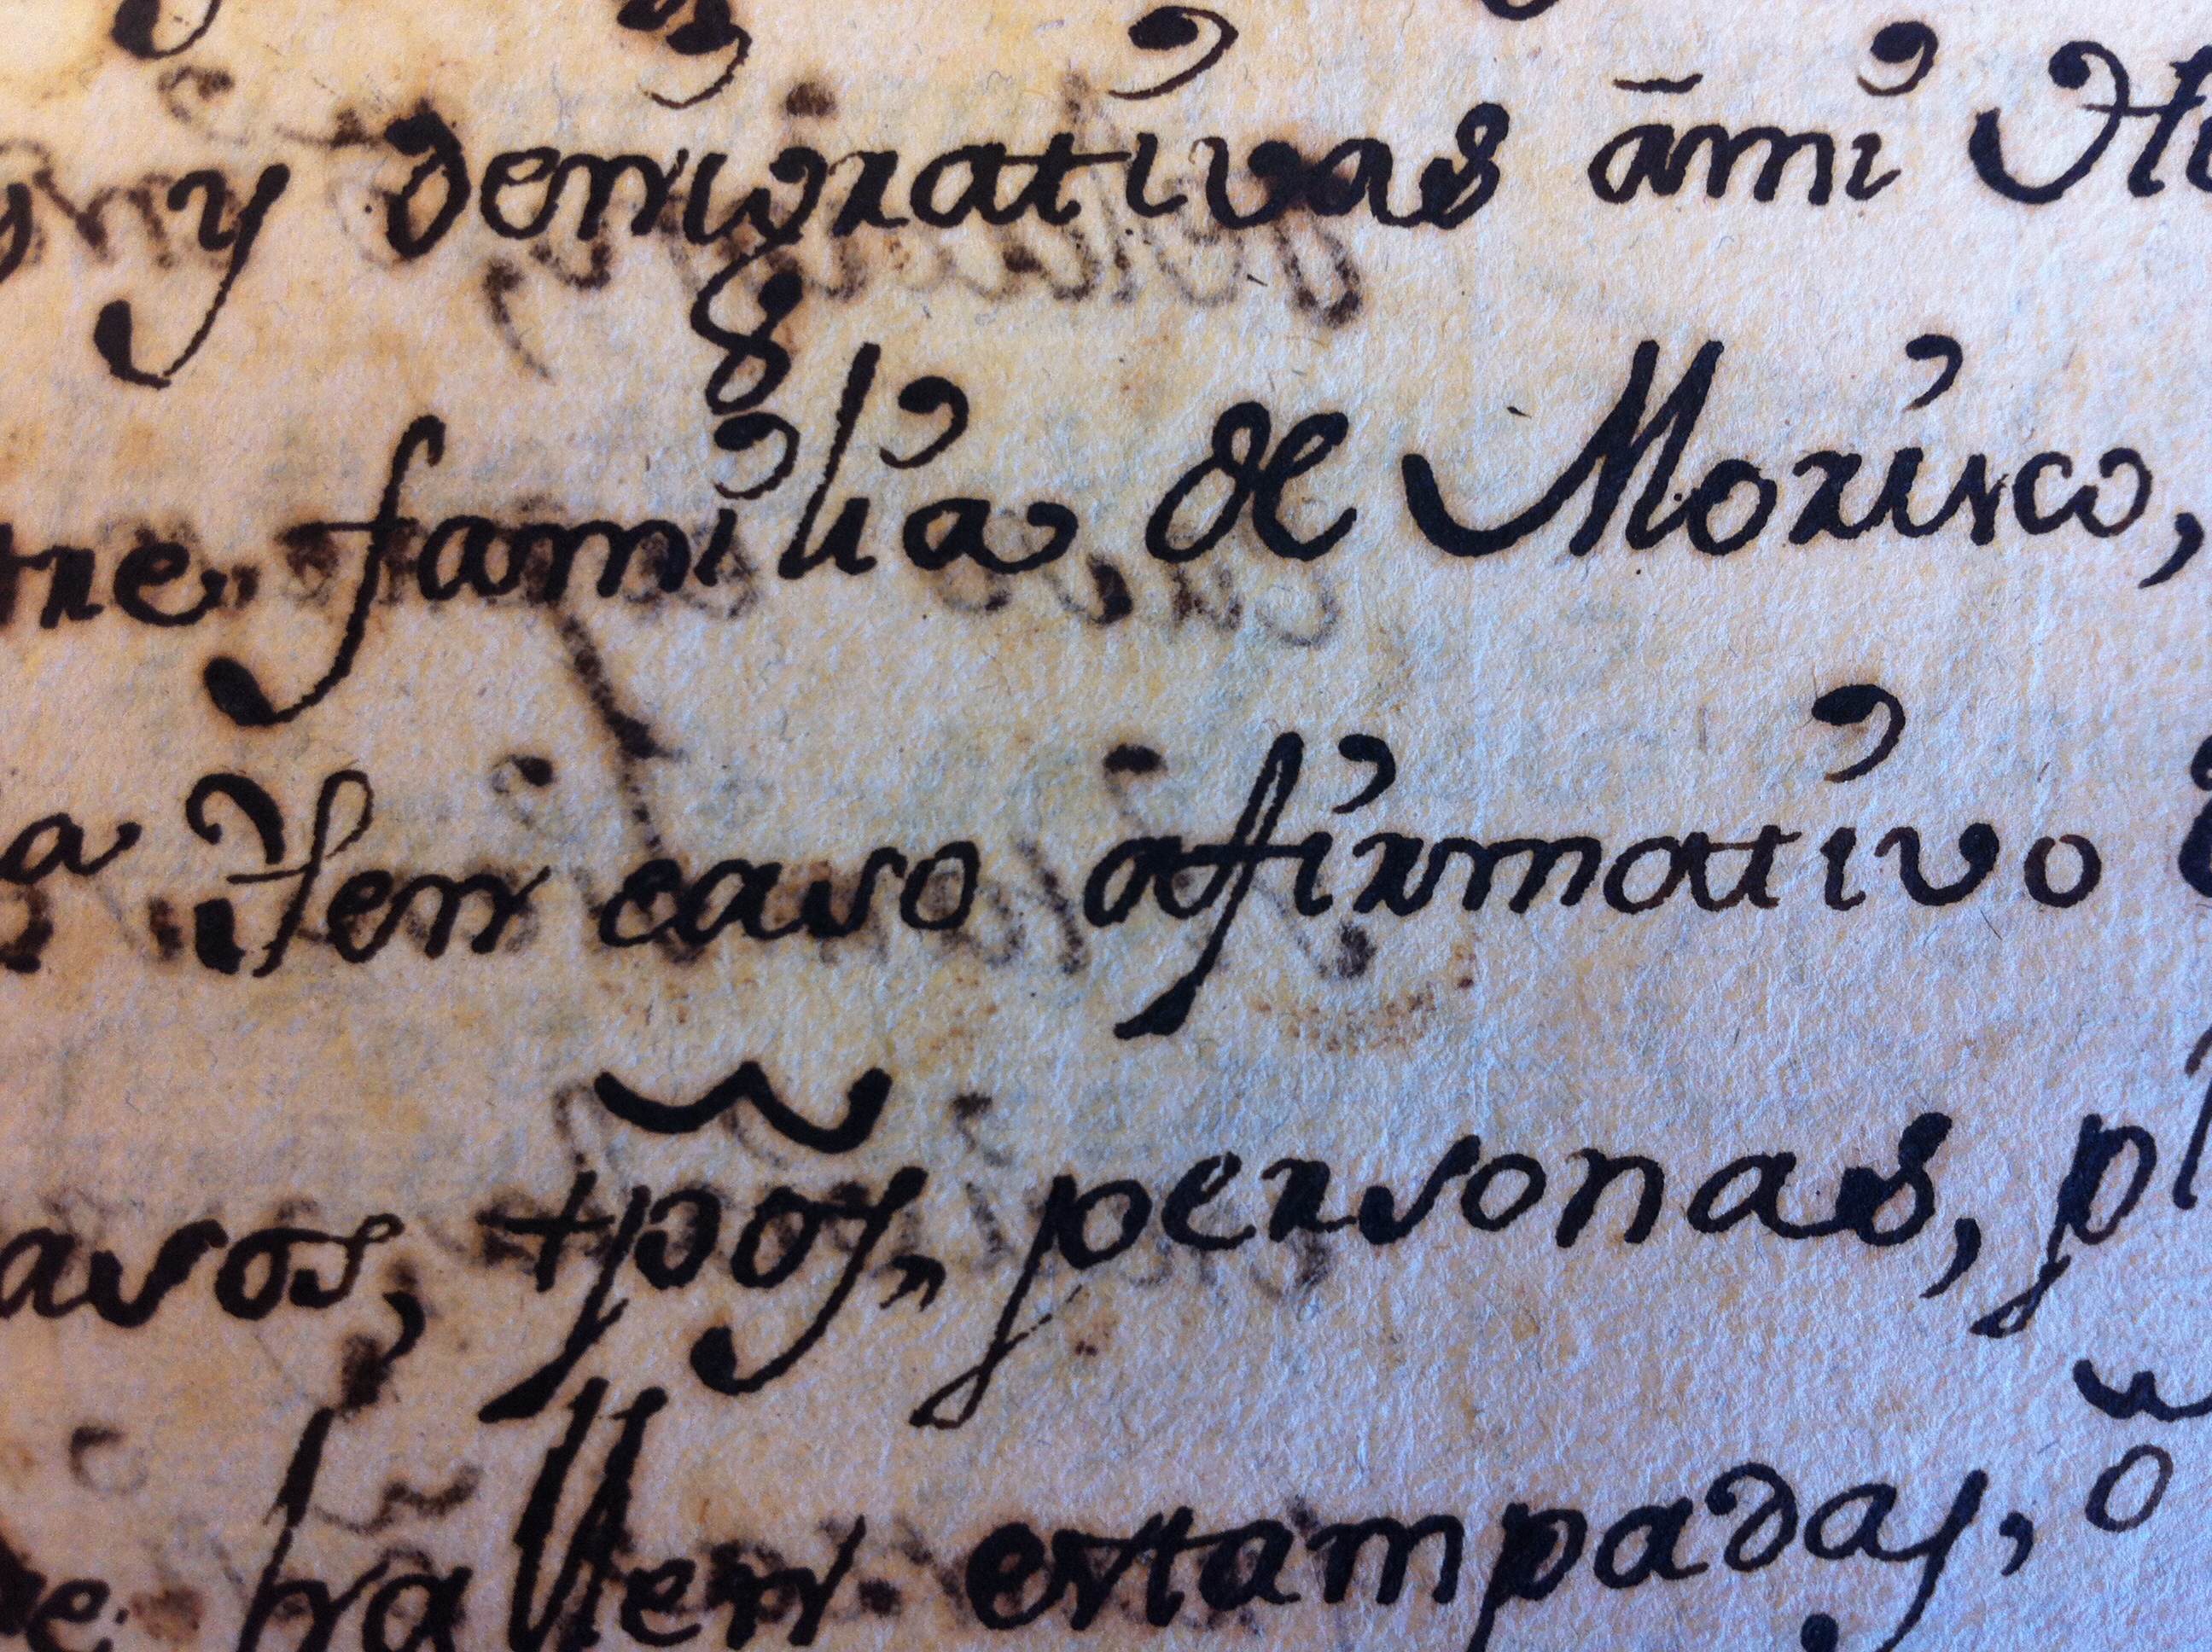 y denigrativas āmi
familia, de Morisco,
a iten caso afirmativo
casos, tpos, personas,
hallen estampadas, o